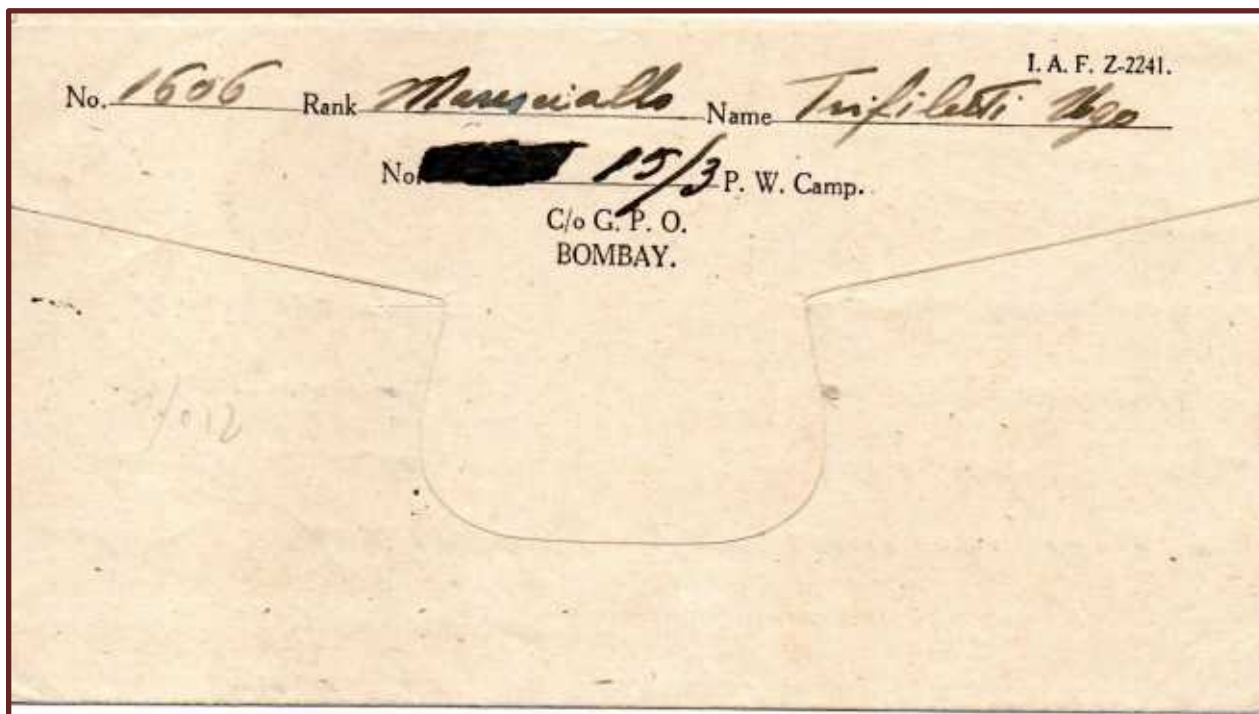 I. A. F. Z-2241.
No. 1606 Rank Maresciallo Name Trifiletti Ugo
No. 15/3 P. W. Camp.
C/o G. P. O.
BOMBAY.